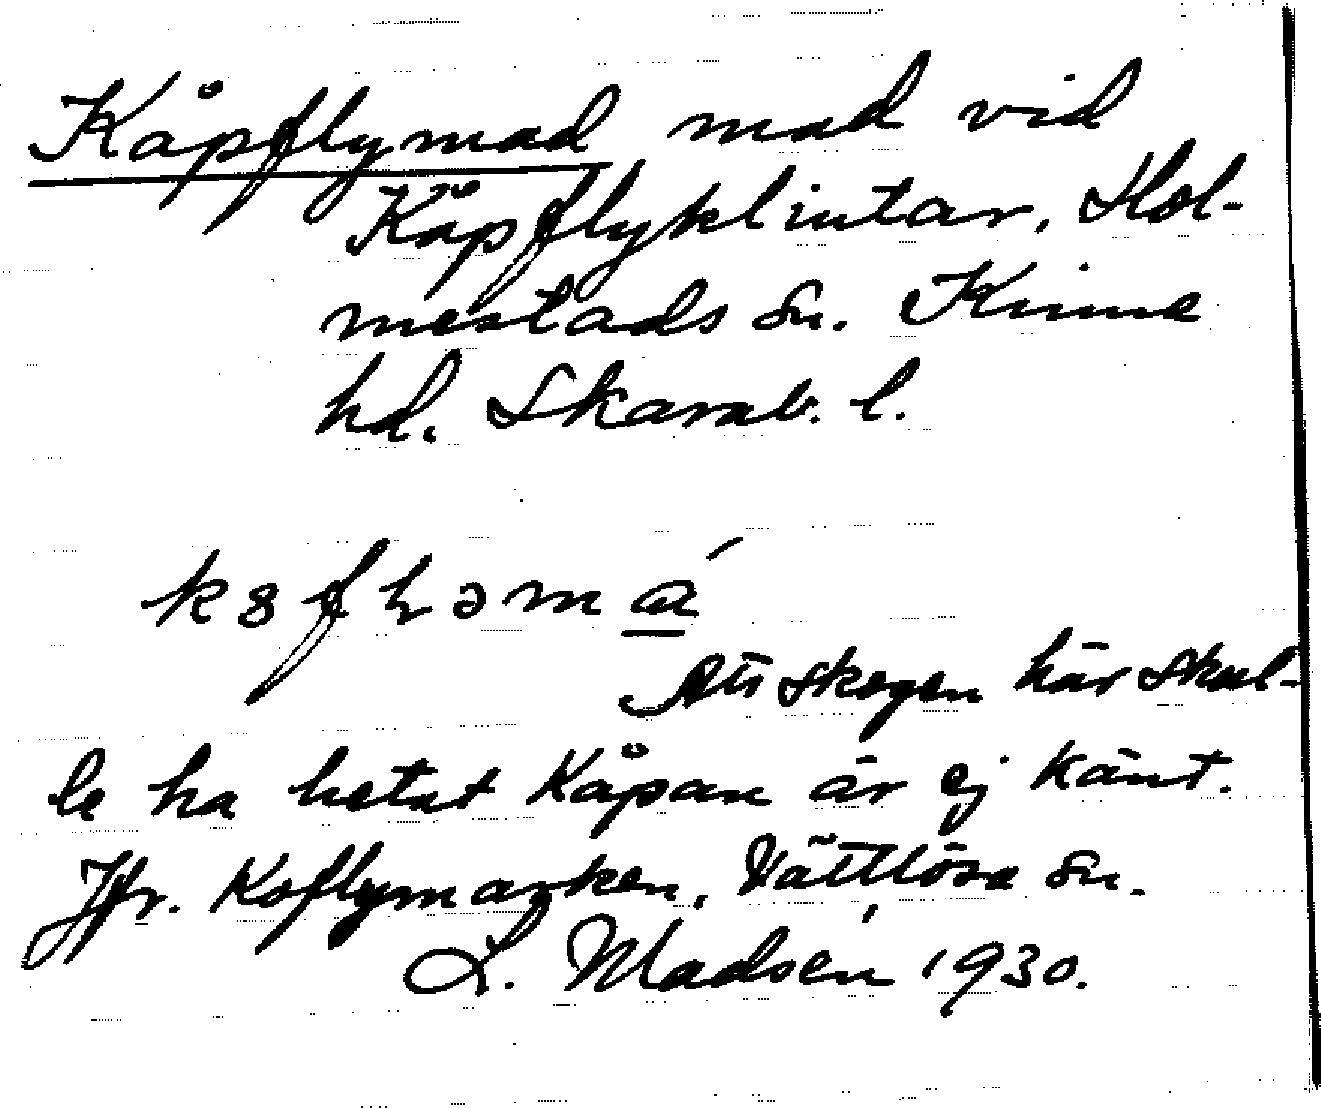 Kåpflymad mad vid
Kåpflyklintar, Hol-
mestads sn. Kinne
hd. Skarab. l.
Att skogen här skul-
le ha hetat Kåpan är ej känt.
Jfr. Koflymarken, Vättlösa sn.
L. Madsén 1930.